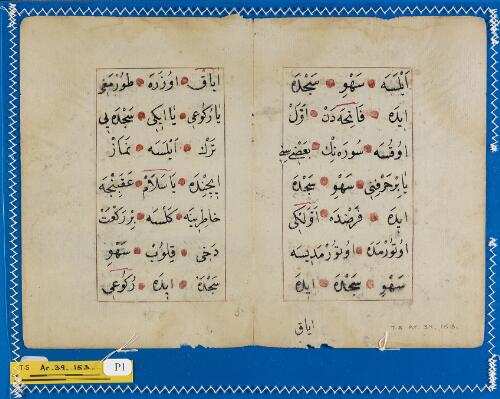 ايلسه سهو سجده
ايده فاتحه دن اول
اوقسه سورەنك بعضسنى
يا بر حرفنى سهو سجده
ايده فرضده اولكى
اوتورمده اوتورمديسه
سهو سجده ايده
اياق
اياق اوزره طورمغى
يا ركوعى يا ايكى سجده يى
ترك ايلسه نماز
ايچنده يا سلام عقبنجه
خاطرينه كلسه بر ركعت
دخى قلوب سهو
سجده ايده ركوعى
T.S Ar.39.153.
T-S Ar.39.153.
P1